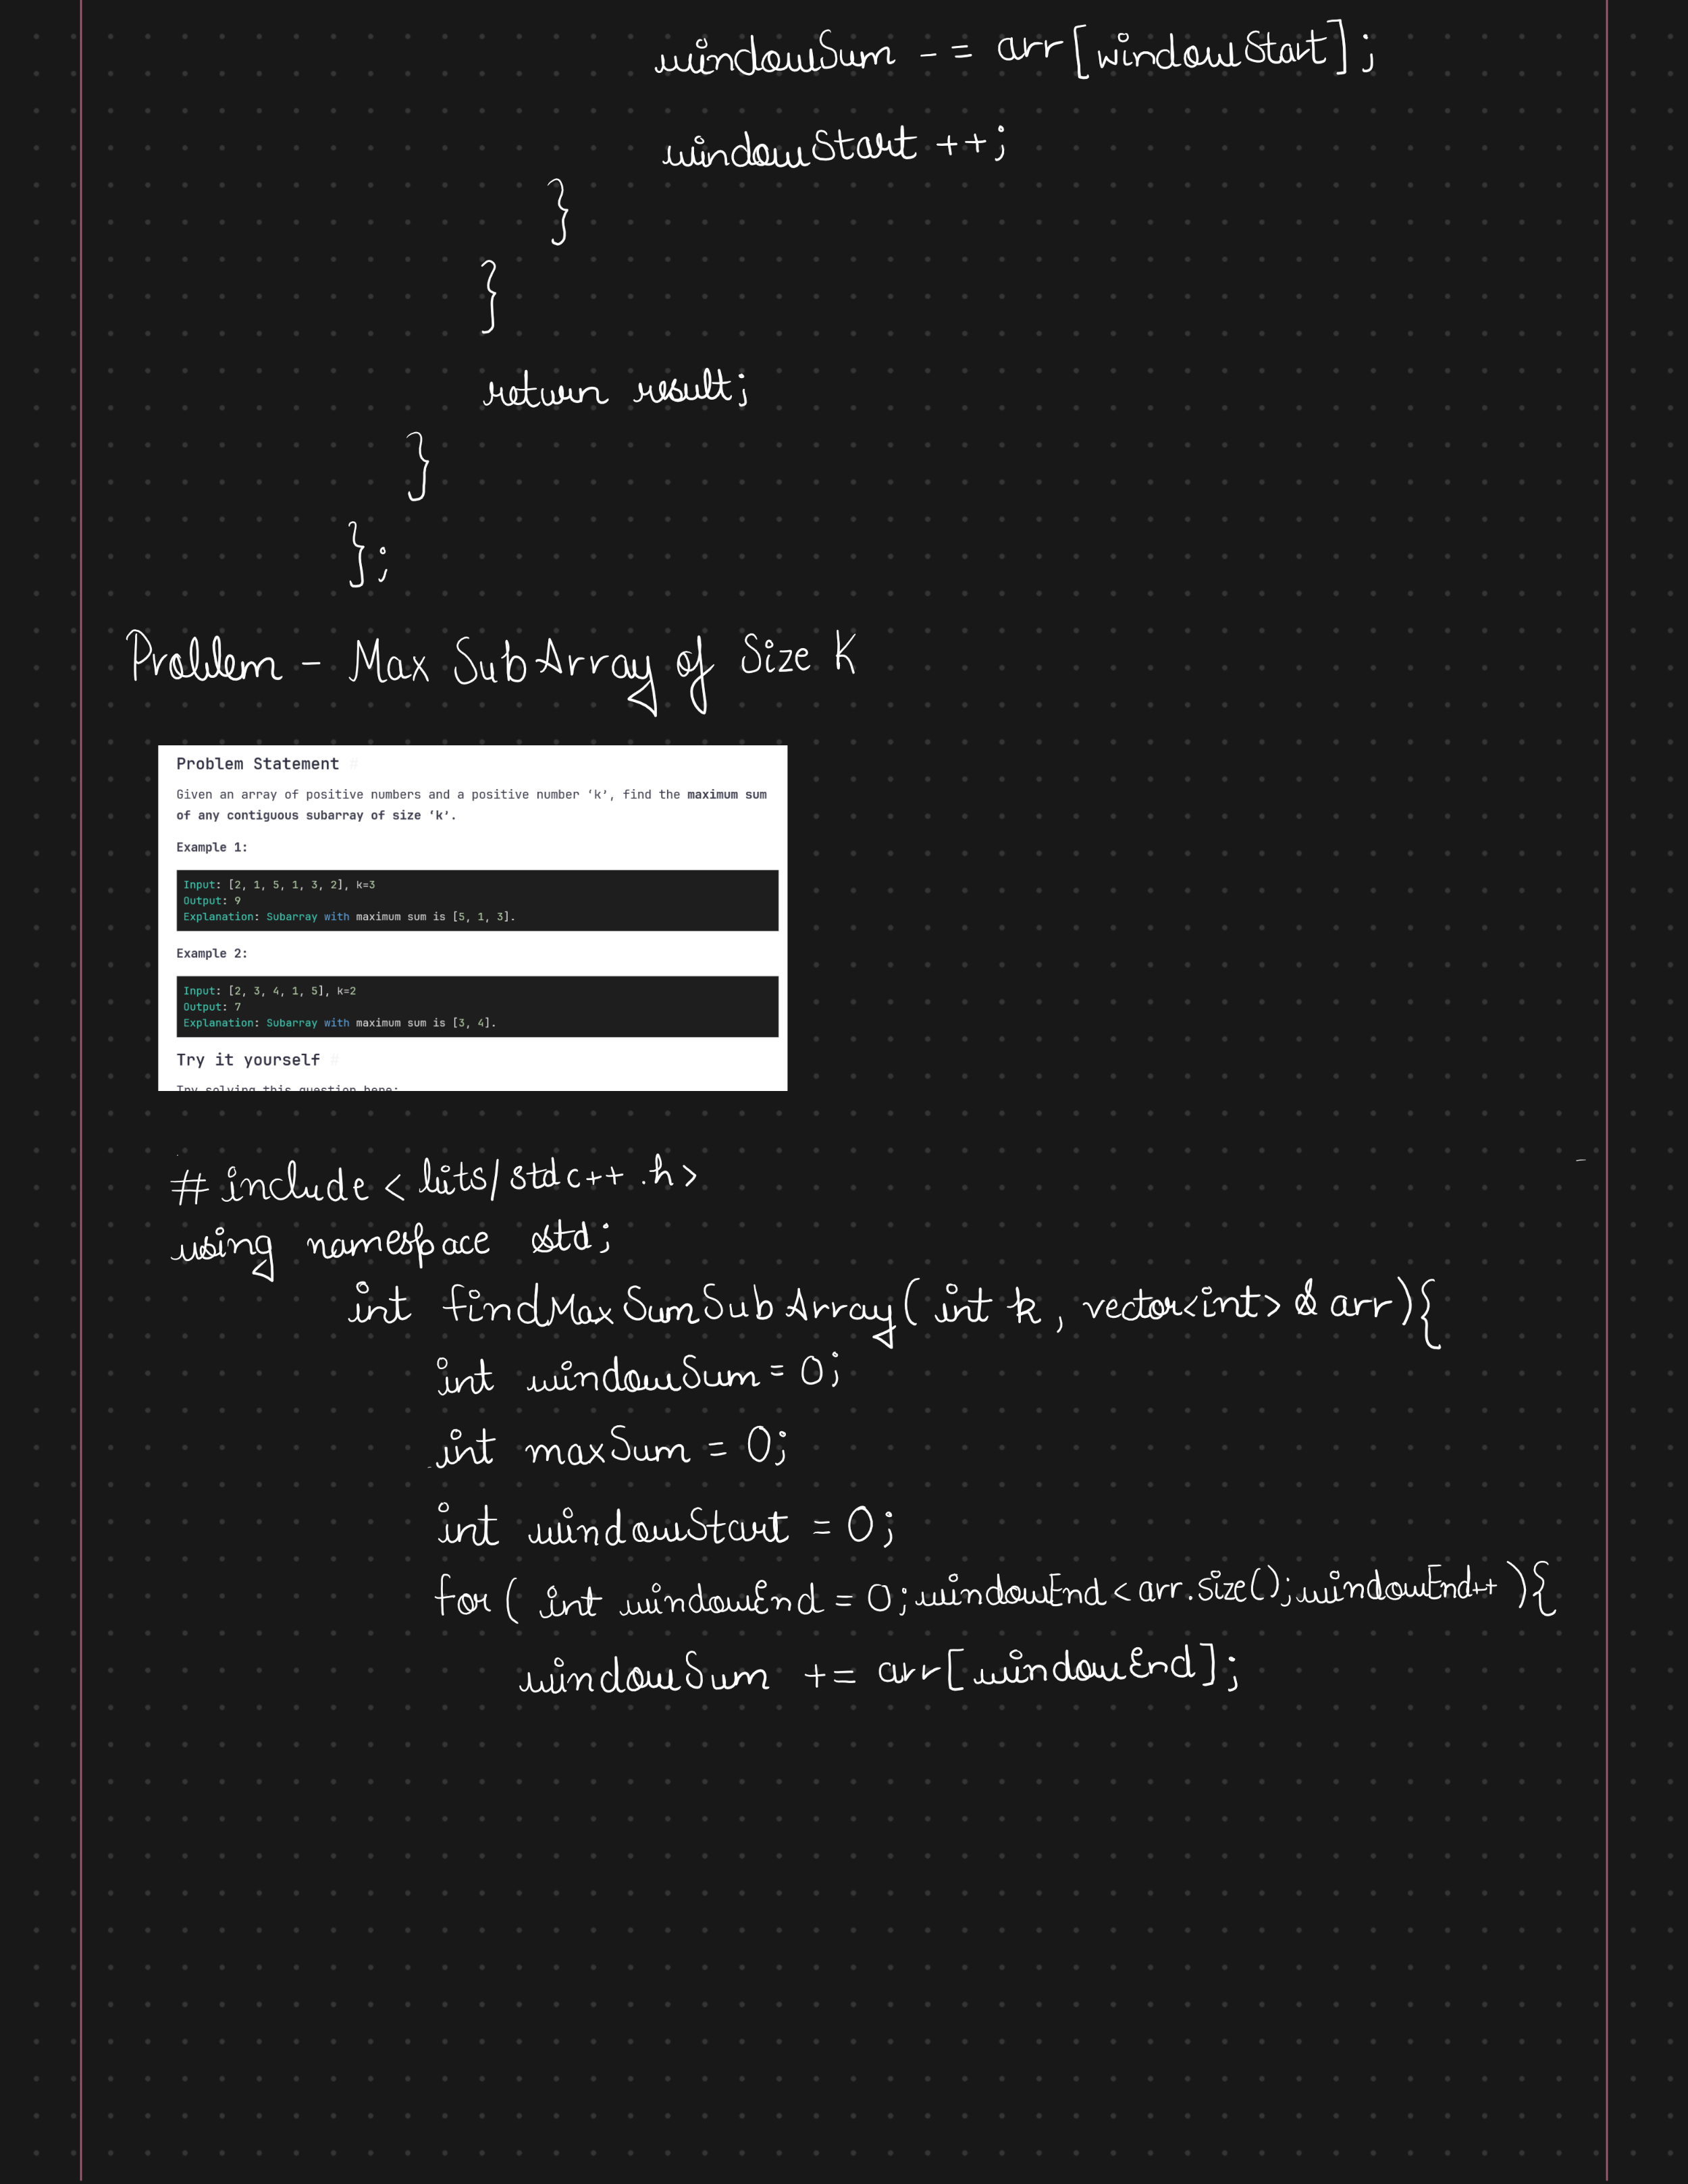 windowSum -= arr[windowStart];
windowStart ++;
}
}
return result;
}
};
Problem - Max SubArray of Size K
Problem Statement #
Given an array of positive numbers and a positive number ‘k’, find the maximum sum
of any contiguous subarray of size ‘k’.
Example 1:
Input: [2, 1, 5, 1, 3, 2], k=3
Output: 9
Explanation: Subarray with maximum sum is [5, 1, 3].
Example 2:
Input: [2, 3, 4, 1, 5], k=2
Output: 7
Explanation: Subarray with maximum sum is [3, 4].
Try it yourself #
Try solving this question here:
# include < bits/stdc++.h>
using namespace std;
int findMaxSumSubArray( int k, vector<int> & arr){
int windowSum = 0;
int maxSum = 0;
int windowStart = 0;
for( int windowEnd = 0; windowEnd < arr.size(); windowEnd++ ){
windowSum += arr[windowEnd];